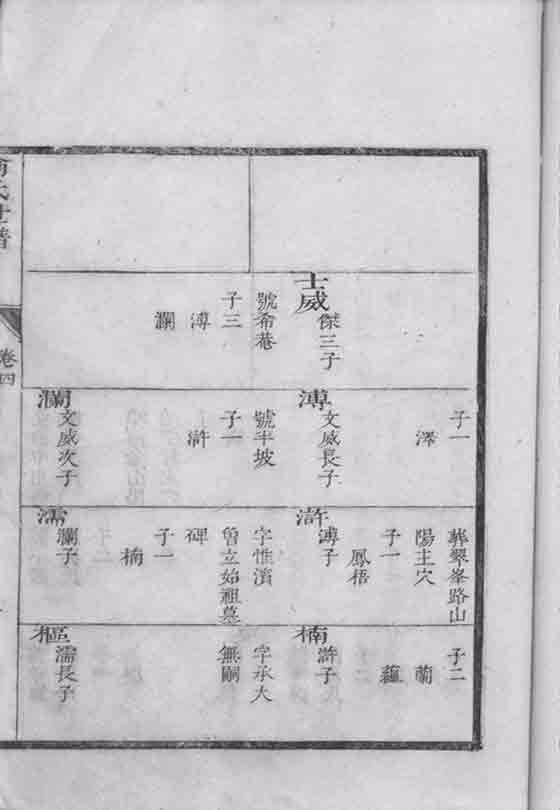 士威
傑三子
號希巷
子三
溥
瀾
子一
澤
溥
文威長子
號半坡
子一
滸
瀾
文威次子
葬翠峯路山
陽主穴
子一
鳳梧
滸
溥子
字惟濱
曾立始祖墓
碑
子一
楠
濡
瀾子
子二
蘭
蘊
楠
滸子
字承大
無嗣
樞
濡長子
氏世譜
卷四